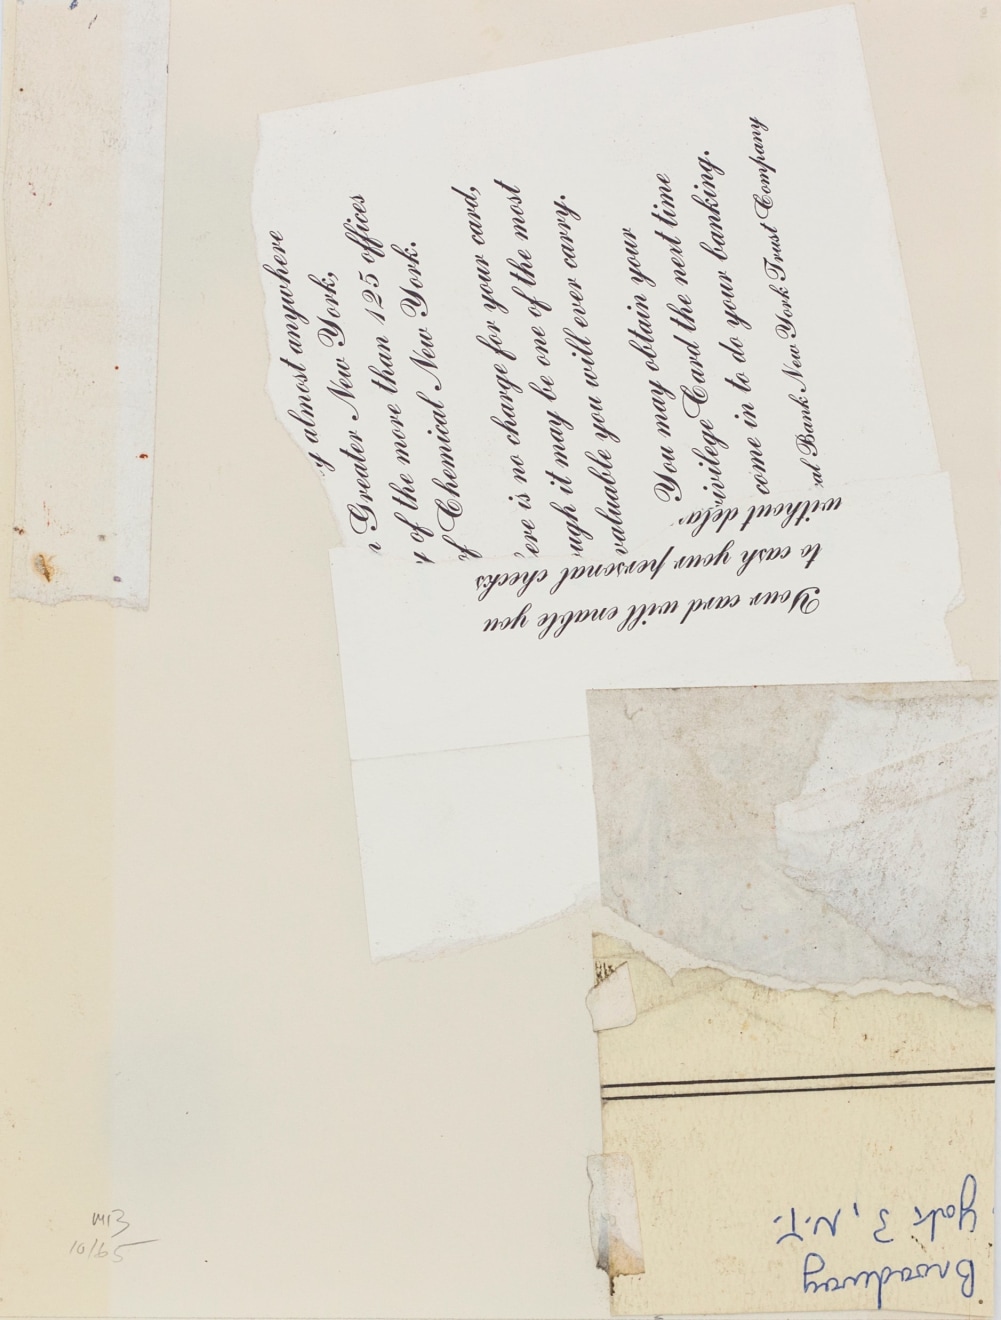 y almost anywhere
Greater New York,
of the more than 125 offices
f Chemical New York.
ere is no charge for your card,
ugh it may be one of the most
valuable you will ever carry.
You may obtain your
rivilege Card the next time
come in to do your banking.
al Bank New York Trust Company
Your card will enable you
to cash your personal checks
without delay
Broadway
York 3, N.Y.
MB
10/65